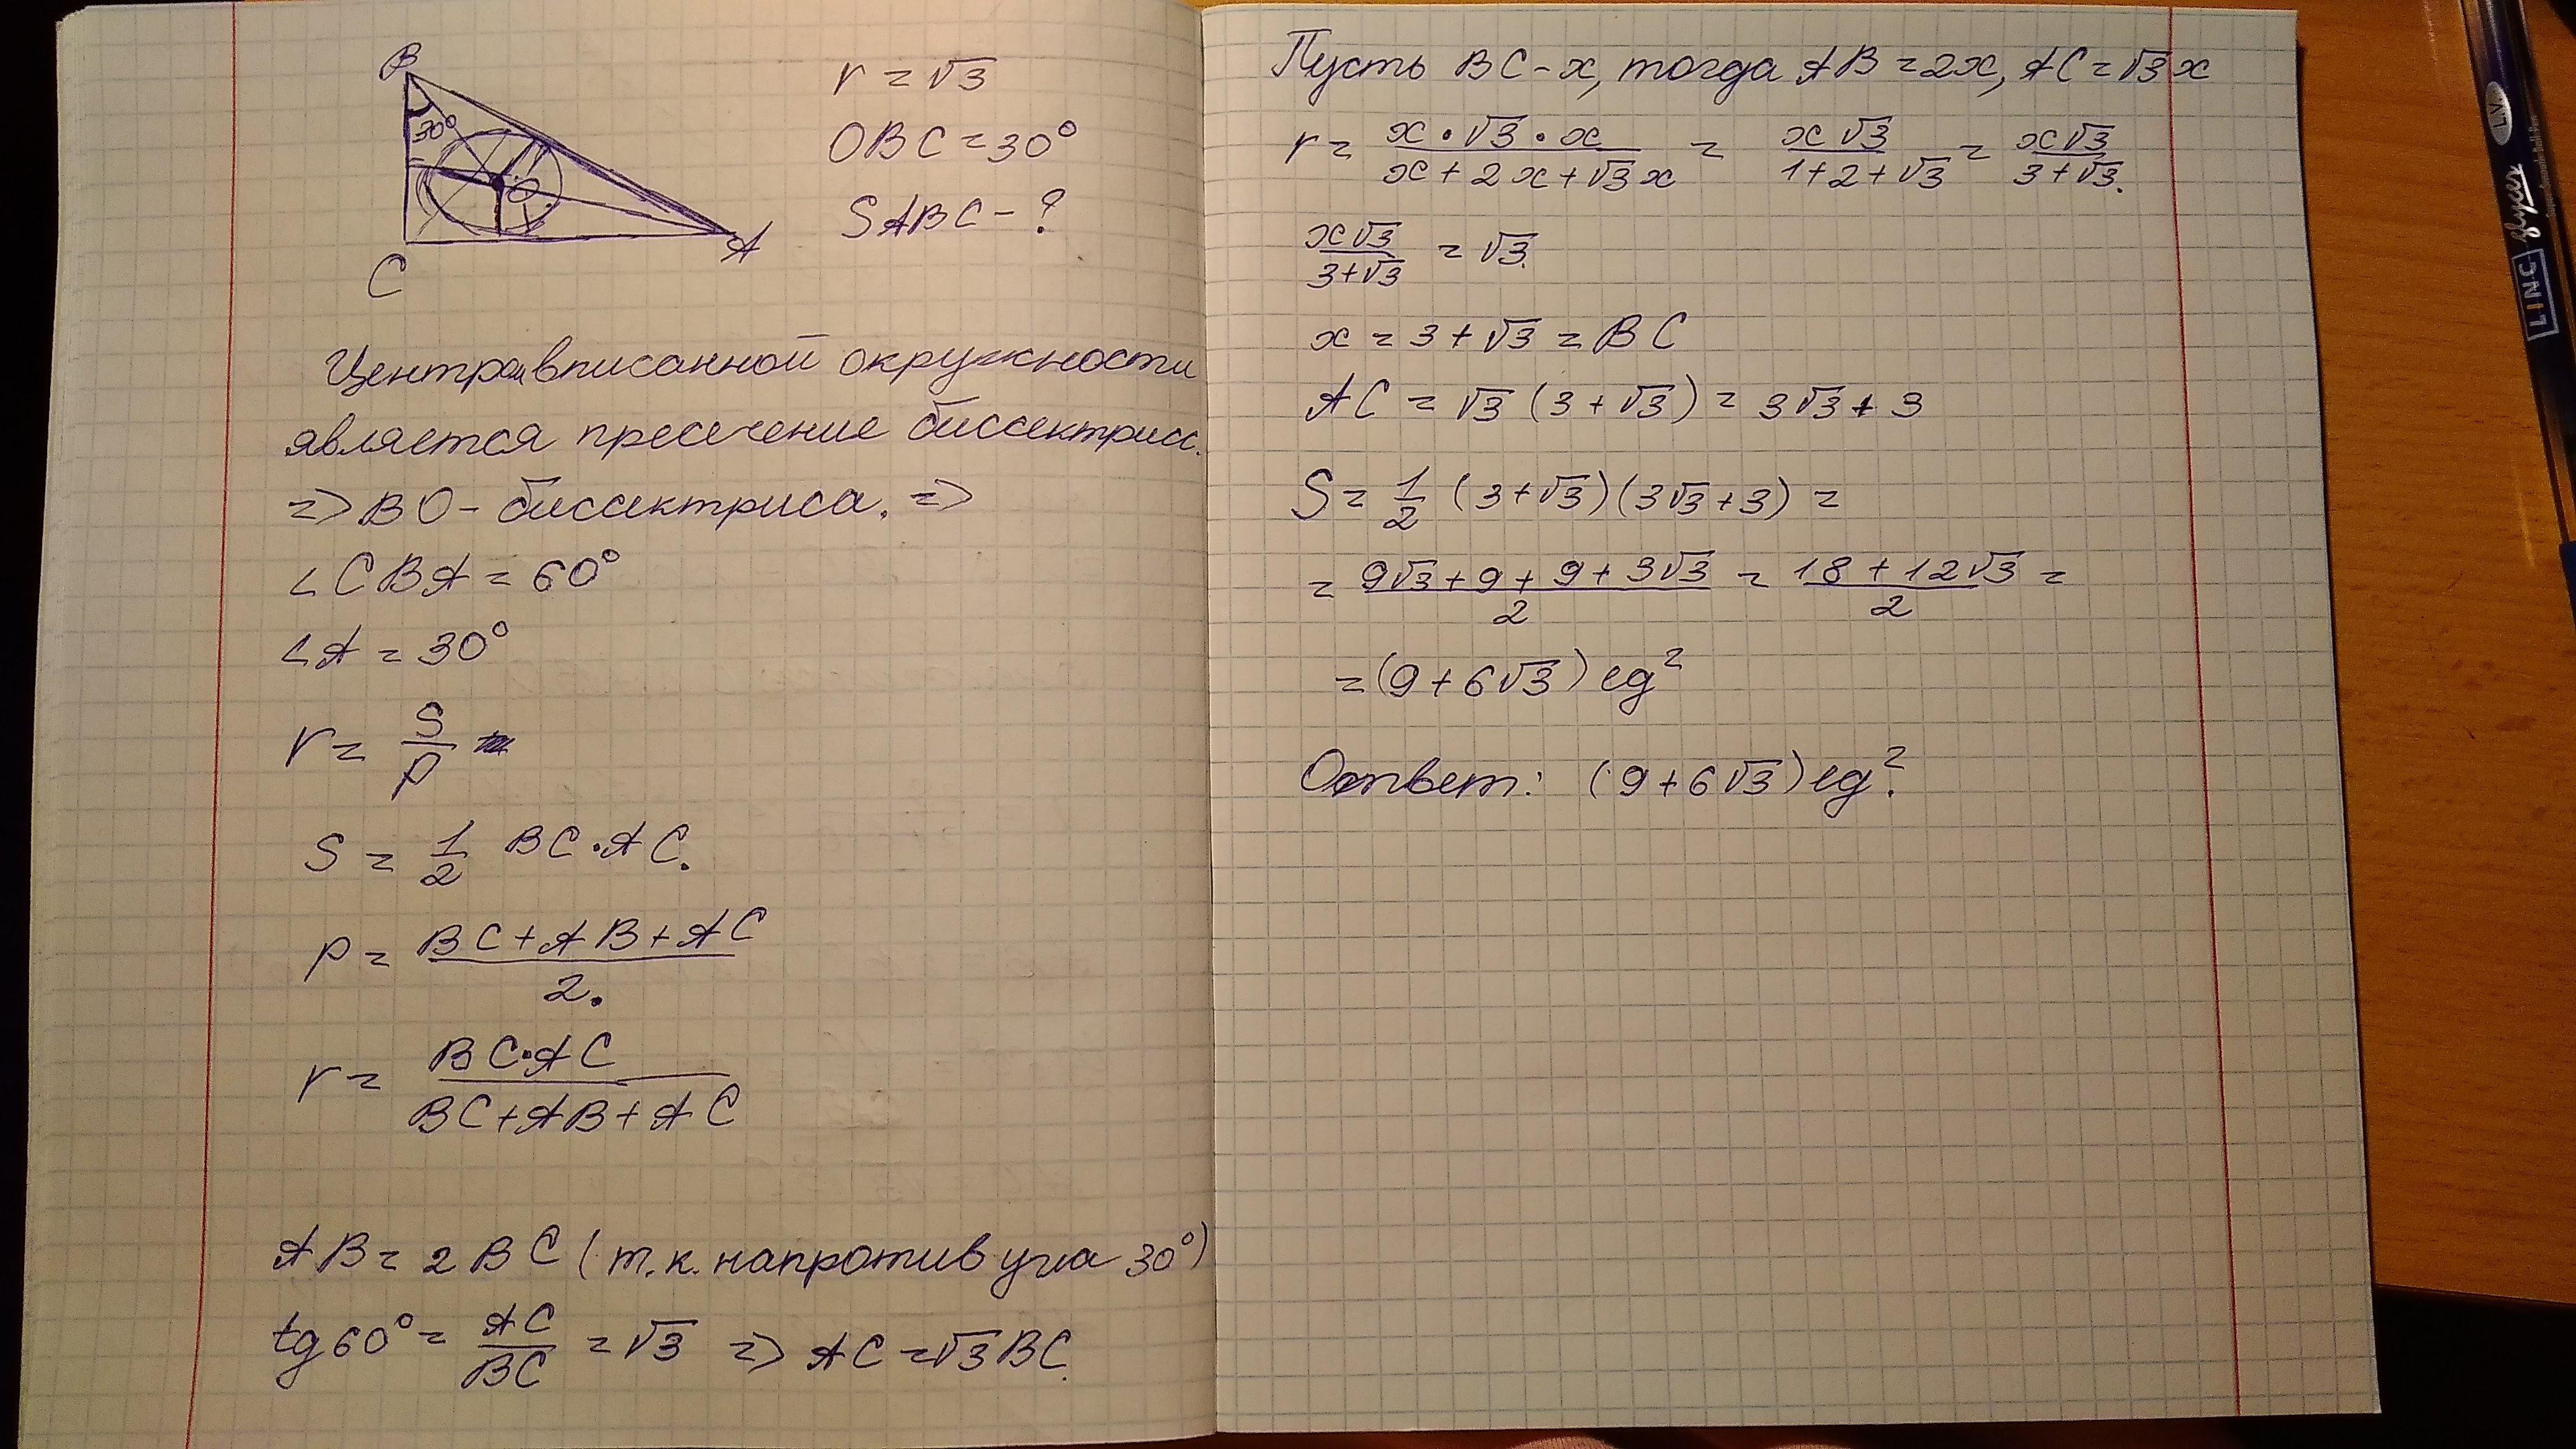 B
30°
O
C
A
r = √3
OBC = 30°
SABC - ?
Центром вписанной окружности
является пресечение биссектрисс.
=> BO - биссектриса. =>
∠CBA = 60°
∠A = 30°
r = S/p
S = 1/2 BC·AC.
p = (BC+AB+AC)/2.
r = BC·AC/(BC+AB+AC)
AB = 2BC (т.к. напротив угла 30°)
tg60° = AC/BC = √3 => AC = √3BC.
Пусть BC - x, тогда AB = 2x, AC = √3x
r = x·√3·x/(x+2x+√3x) = x√3/(1+2+√3) = x√3/(3+√3).
x√3/(3+√3) = √3.
x = 3+√3 = BC
AC = √3(3+√3) = 3√3+3
S = 1/2 (3+√3)(3√3+3) =
= (9√3+9+9+3√3)/2 = (18+12√3)/2 =
= (9+6√3) eg²
Ответ: (9+6√3) eg².
L.V.
flycer
LINC